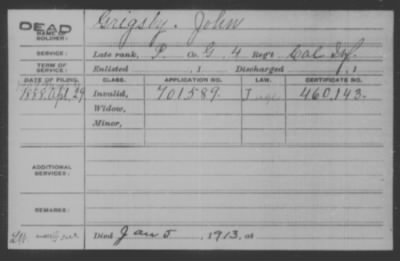 DEAD Grigsby. John
NAME OF SOLDIER:
SERVICE: Late rank, P. Co. G, 4 Reg't Cal Inf.
TERM OF SERVICE: Enlisted , 1 Discharged , 1
DATE OF FILING. CLASS. APPLICATION NO. LAW. CERTIFICATE NO.
1888, Apl. 29 Invalid, 701589. J 460,143.
Widow,
Minor,
ADDITIONAL SERVICES:
REMARKS:
Died Jan 5, 1913, at